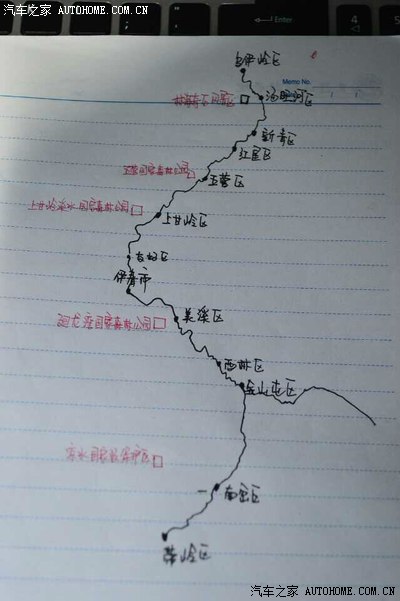 汽车之家 AUTOHOME.COM.CN
Enter
4
5
乌伊岭区
Memo No.
汤旺河区
新青区
红星区
五营国家森林公园
五营区
上甘岭溪水国家森林公园
上甘岭区
友好区
伊春市
回龙湾国家森林公园
美溪区
西林区
金山屯区
凉水国家级保护区
南岔区
带岭区
汽车之家 AUTOHOME.COM.CN